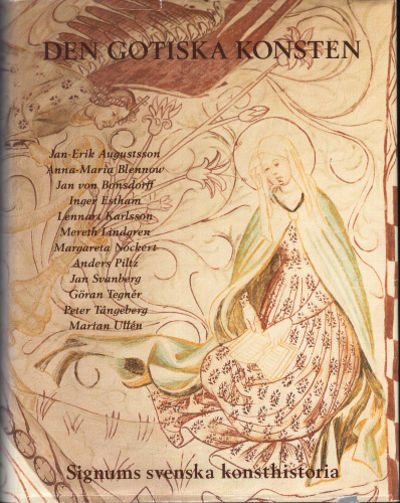 DEN GOTISKA KONSTEN
Jan-Erik Augustsson
Anna-Maria Blennow
Jan von Bonsdorff
Inger Estham
Lennart Karlsson
Mereth Lindgren
Margareta Nockert
Anders Piltz
Jan Svanberg
Göran Tegnér
Peter Tångeberg
Marian Ullén
Signums svenska konsthistoria